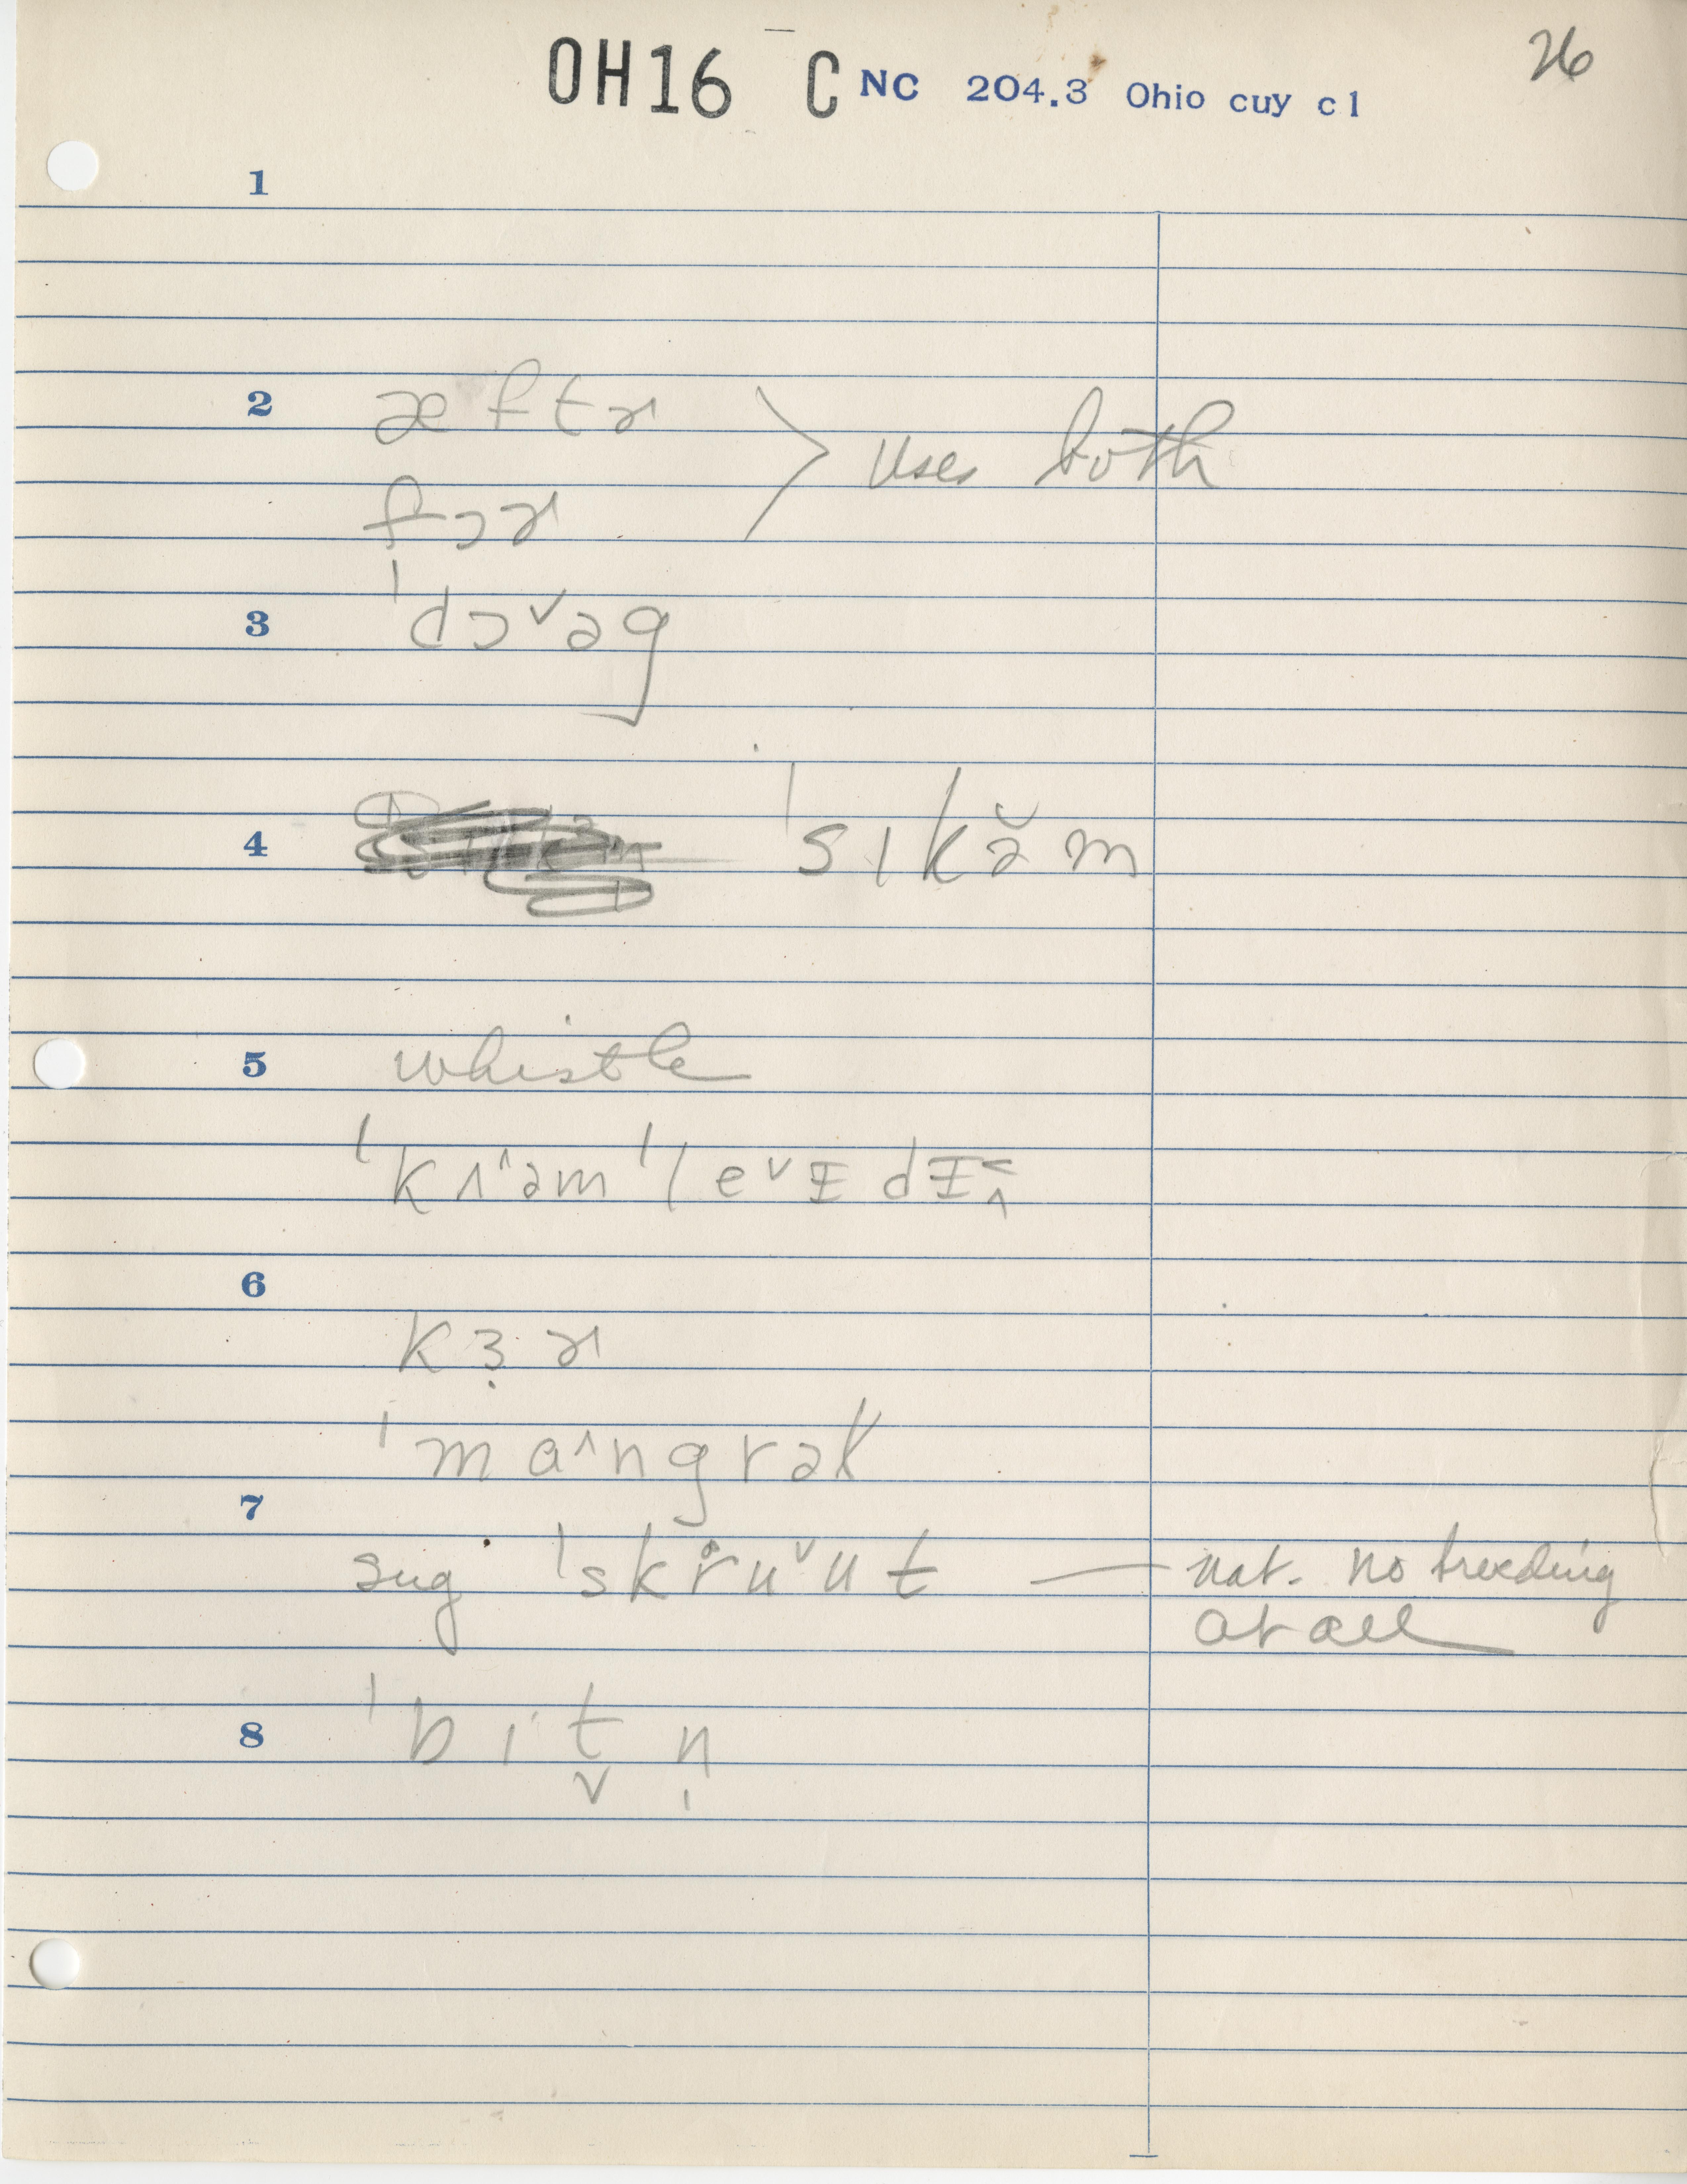 OH16 C NC 204.3 Ohio cuy c1
26
1
2 æftɚ
fɔɚ > uses both
3 ˈdɔ˅əg
4 ˈsɪkə̆m
5 whistle
ˈkʌ˄əm ˈle˅ɪdɪ
6
kɜ̣ɚ
ˈma˄ngrəl
7
sug ˈskr̥u˅ut — nat. no breeding
at all
8 ˈbɪt̬n̩